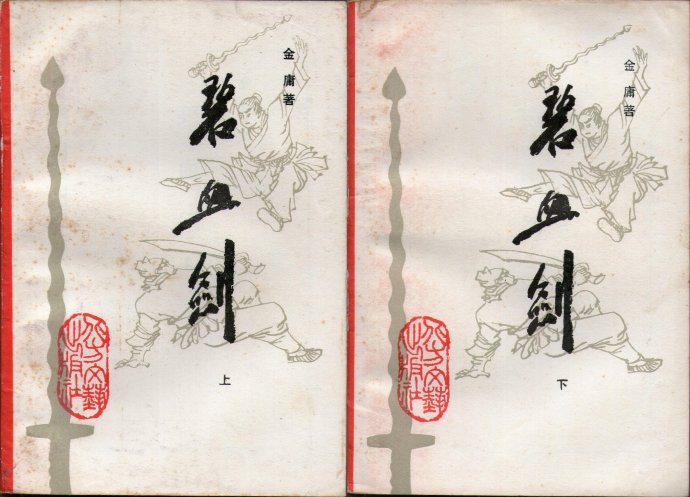 金庸著
碧血剑
上
金庸著
碧血剑
下